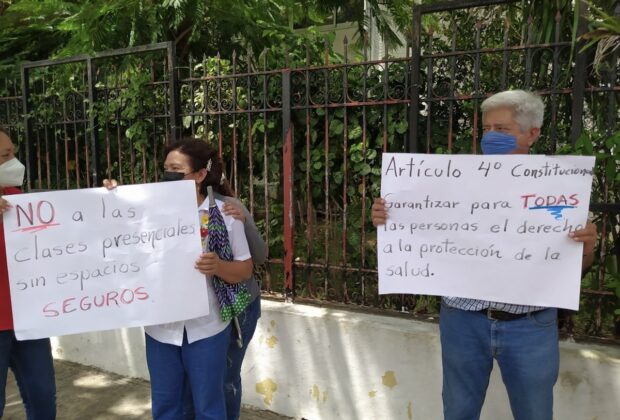 NO a las
clases presenciales
sin espacios
SEGUROS.
Artículo 4º Constitucional
Garantizar para TODAS
las personas el derecho
a la protección de la
salud.